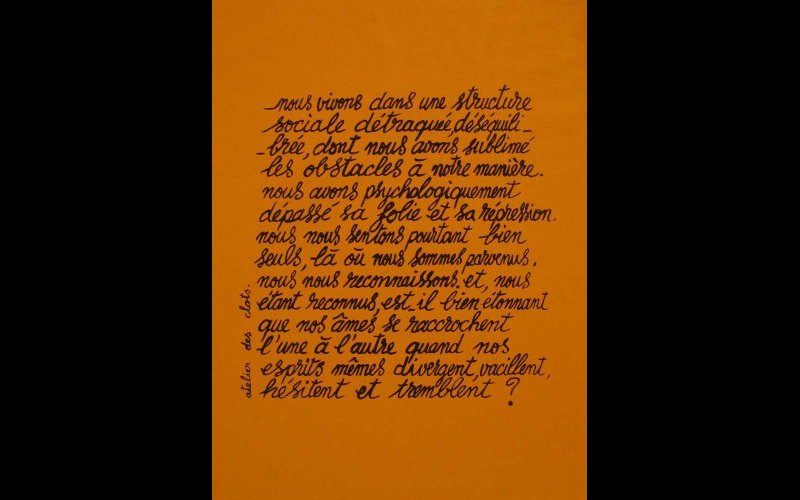 nous vivons dans une structure
sociale détraquée, déséquili_
_brée, dont nous avons sublimé
les obstacles à notre manière.
nous avons psychologiquement
dépassé sa folie et sa répression.
nous nous sentons pourtant bien
seuls, là où nous sommes parvenus.
nous nous reconnaissons. et, nous
étant reconnus, est_il bien étonnant
que nos âmes se raccrochent
l'une à l'autre quand nos
esprits mêmes divergent, vacillent,
hésitent et tremblent ?
atelier des clots.